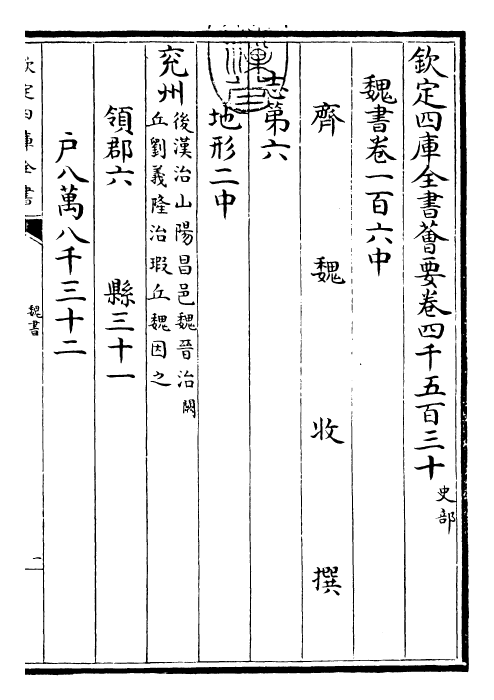 欽定四庫全書薈要卷四千五百三十 史部
魏書卷一百六中
齊 魏 收 撰
志第六
地形二中
兖州 後漢治山陽昌邑魏晉治闕
丘劉義隆治瑕丘魏因之
領郡六 縣三十一
戶八萬八千三十二
欽定四庫全書
魏書
一